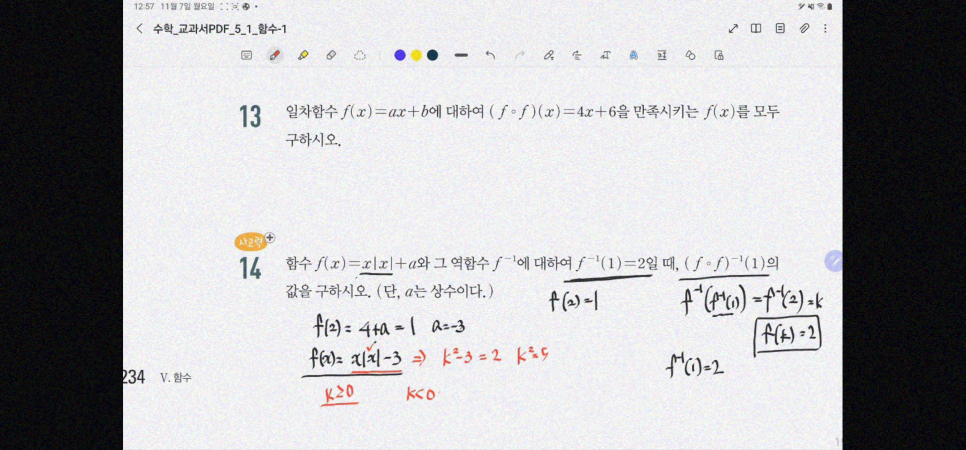 12:57 11월 7일 월요일
수학_교과서PDF_5_1_함수-1
13 일차함수 f(x)=ax+b에 대하여 (f∘f)(x)=4x+6을 만족시키는 f(x)를 모두
구하시오.
사고력
14 함수 f(x)=x|x|+a와 그 역함수 f⁻¹에 대하여 f⁻¹(1)=2일 때, (f∘f)⁻¹(1)의
값을 구하시오. (단, a는 상수이다.)
f(2)=1
f⁻¹(f⁻¹(1))=f⁻¹(2)=k
f(2)=4+a=1 a=-3
f(k)=2
f(x)=x|x|-3 ⇒ k²-3=2 k²=5
f⁻¹(1)=2
234 V. 함수
k≥0 k<0